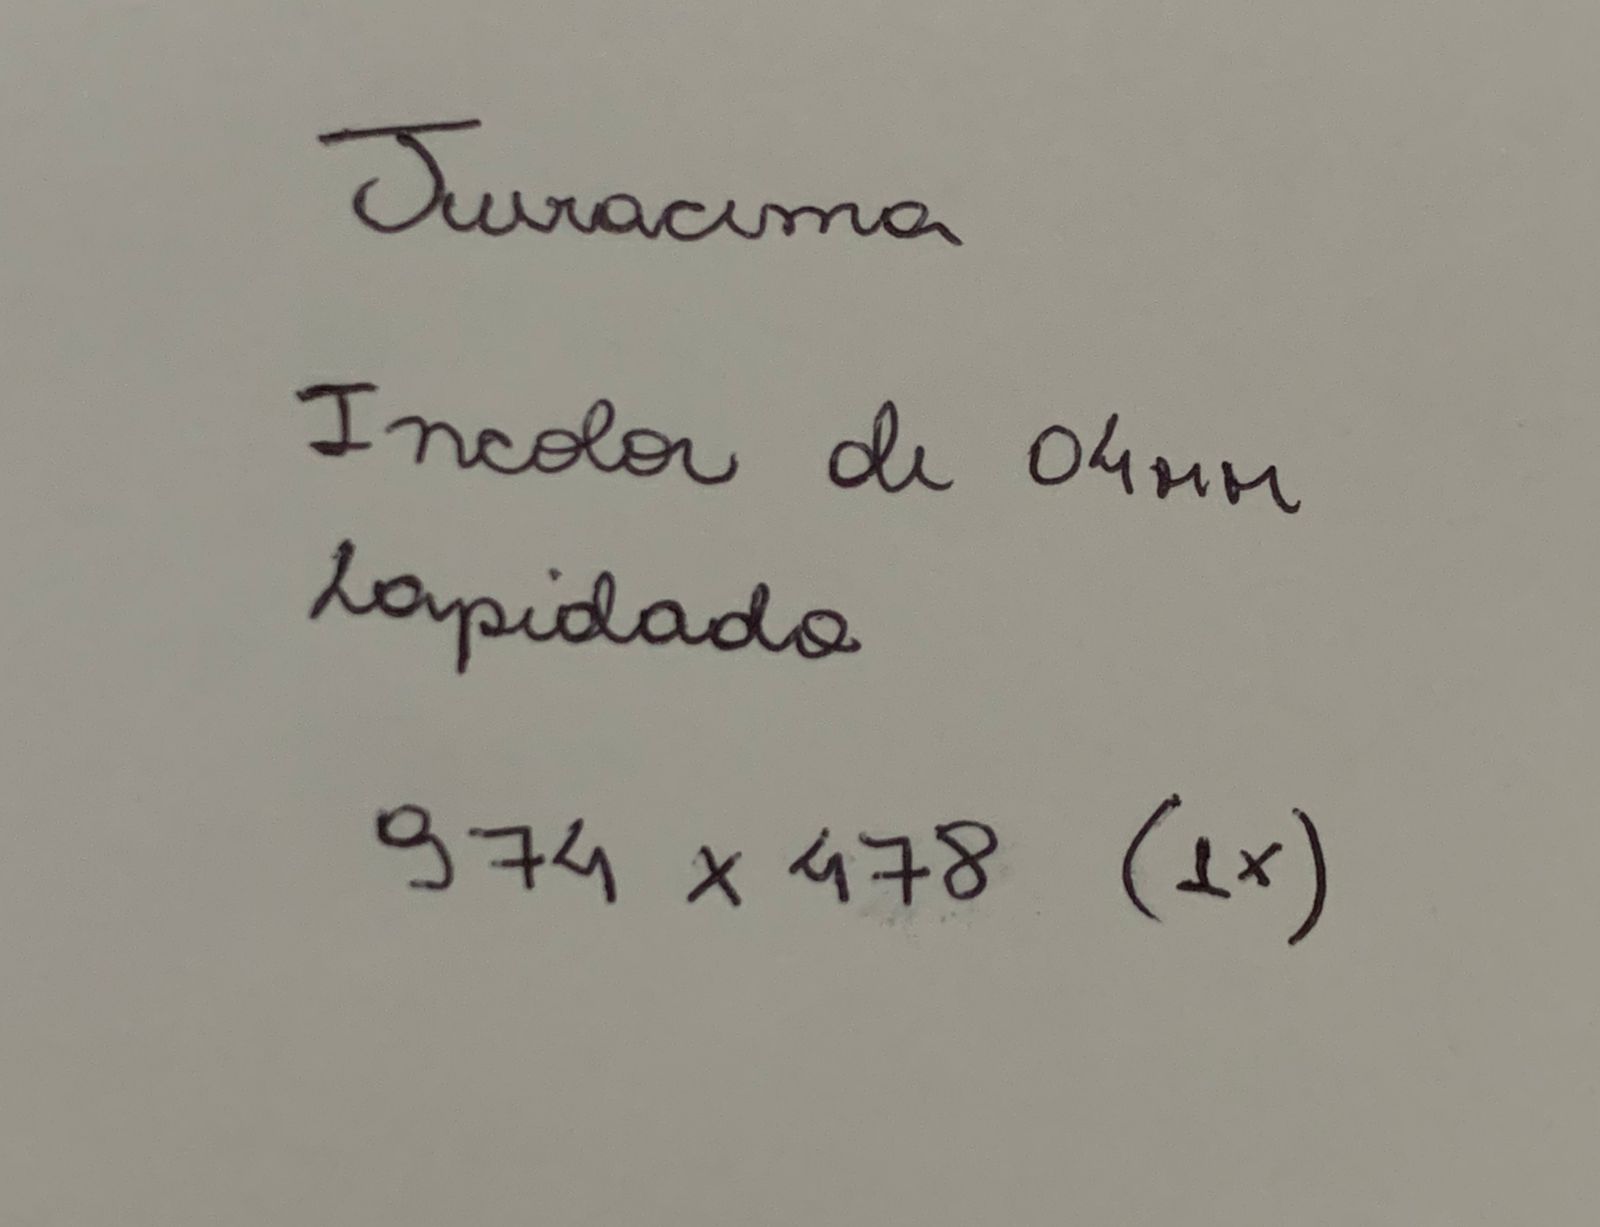 Juracima
Incolor de 04mm
Lapidado
974 x 478 (1x)